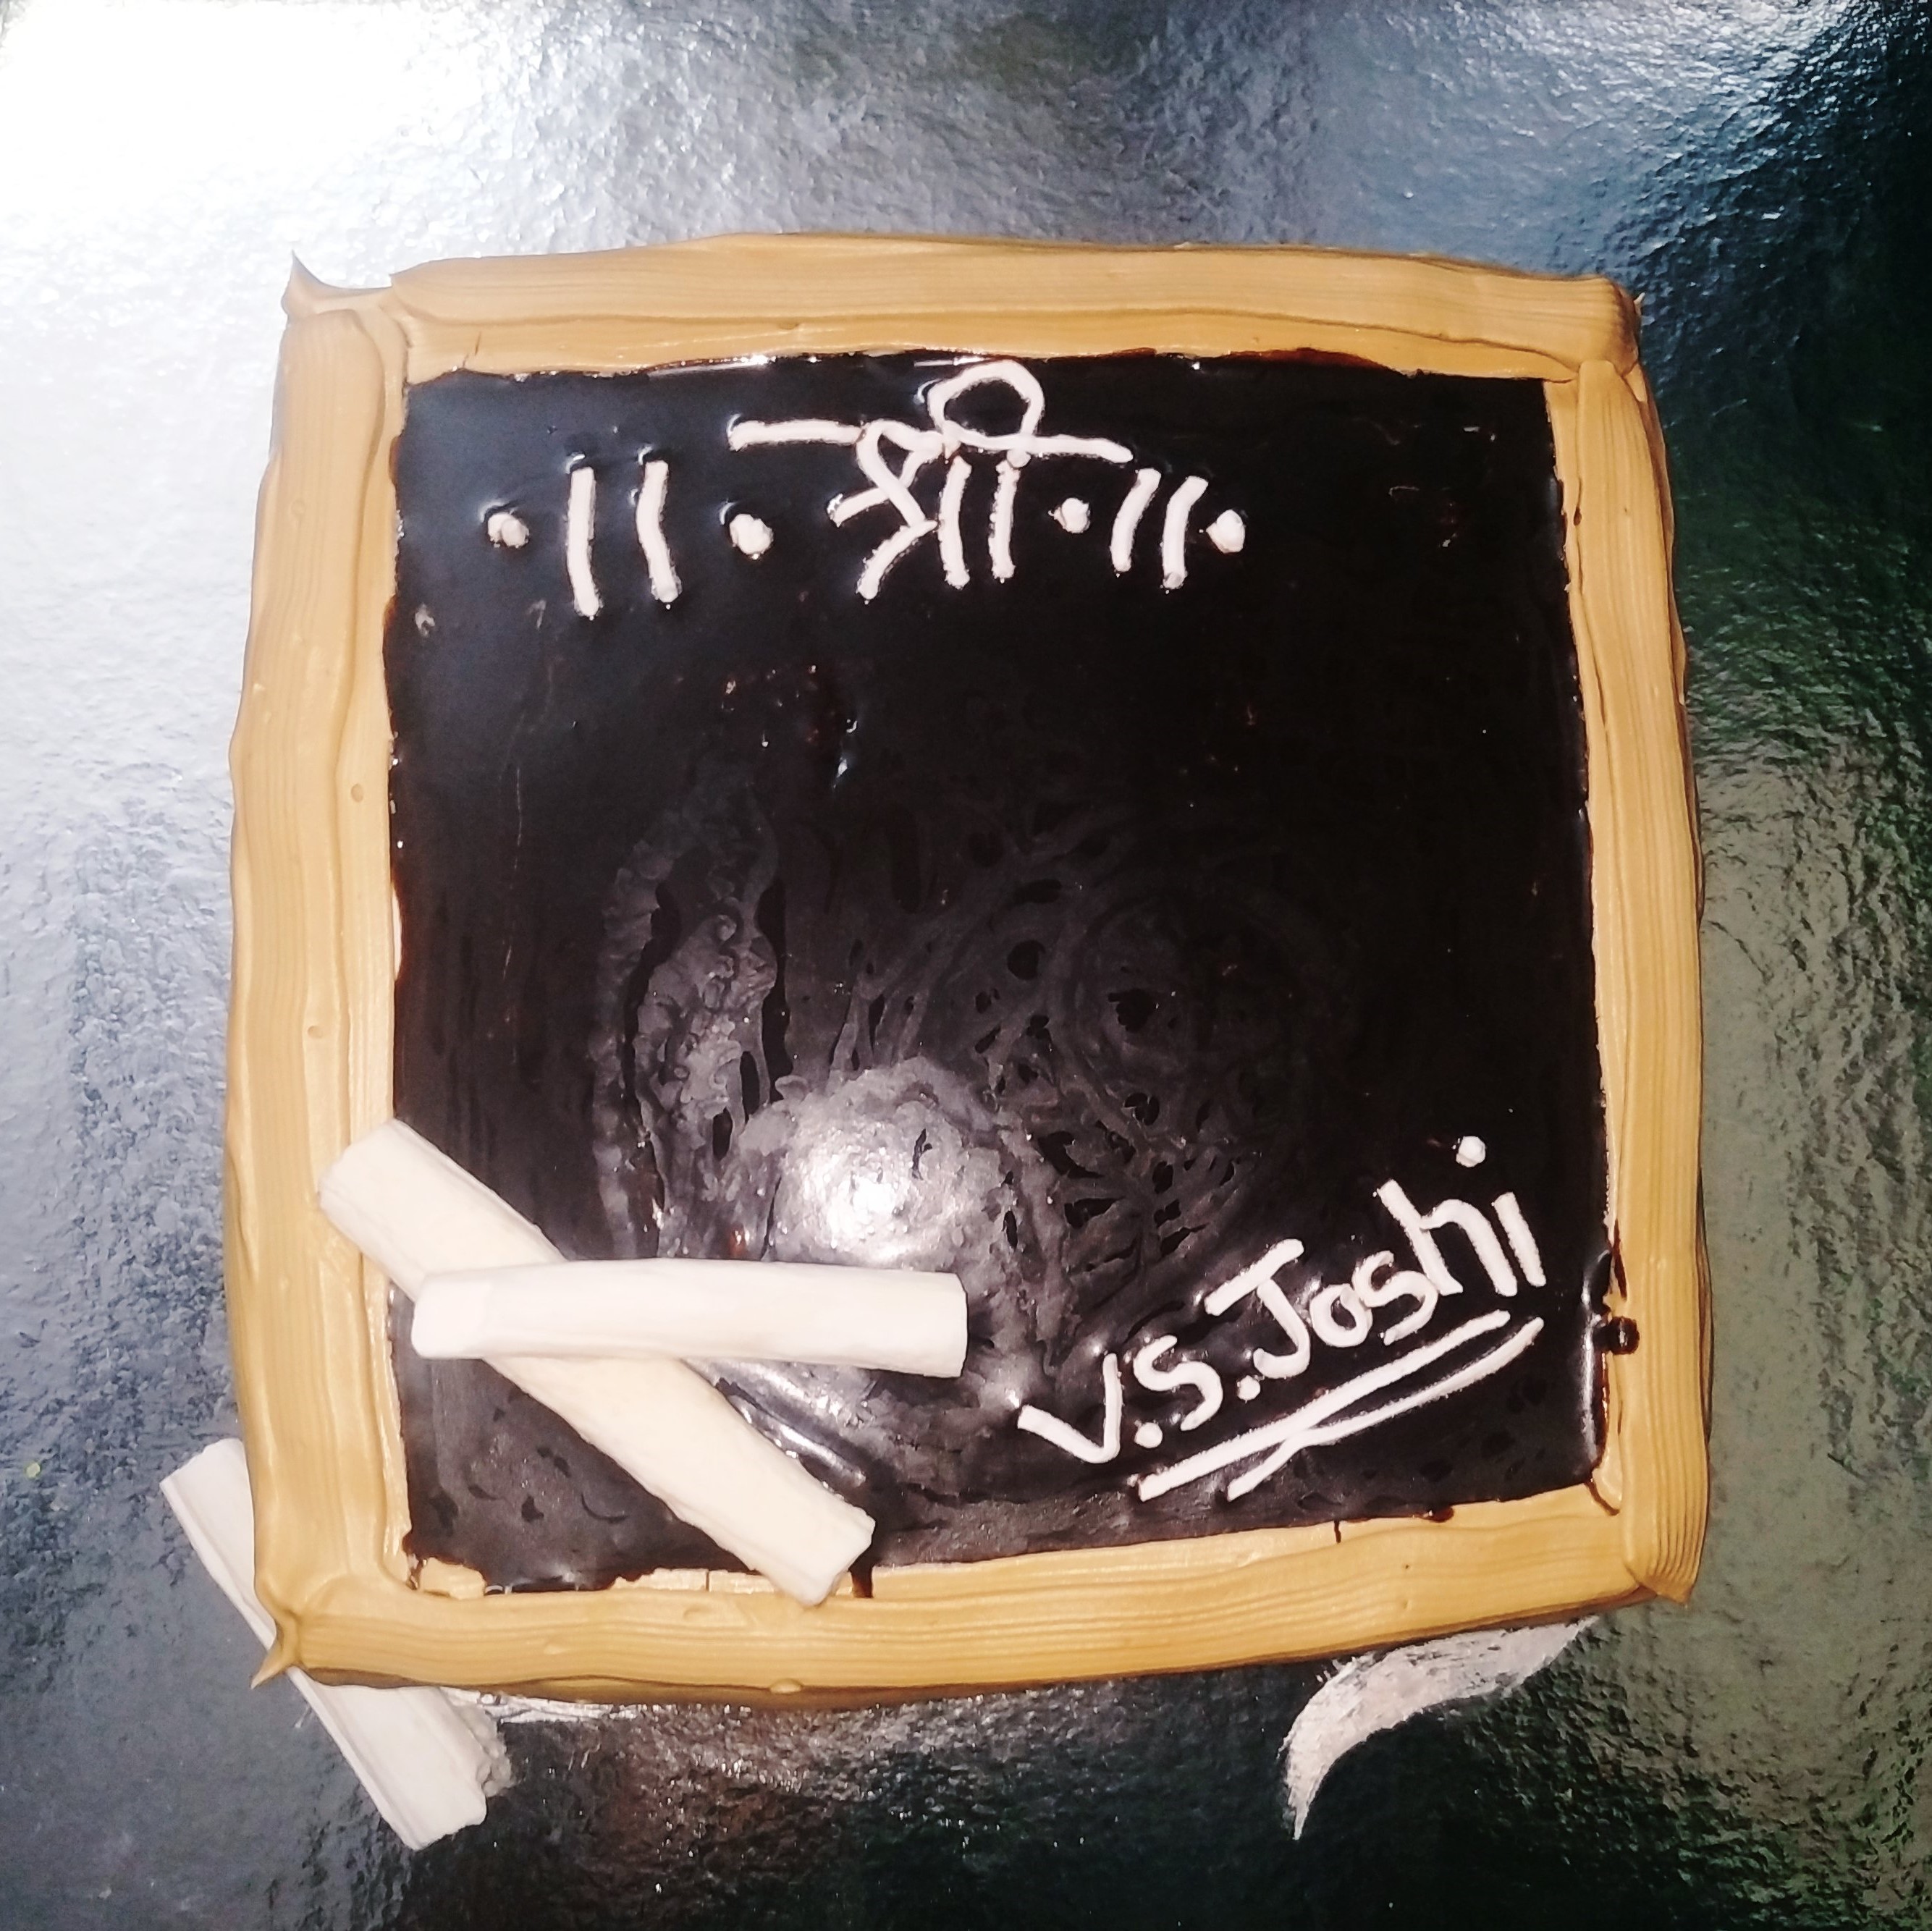 ·॥· श्री ·॥·
V.S.Joshi